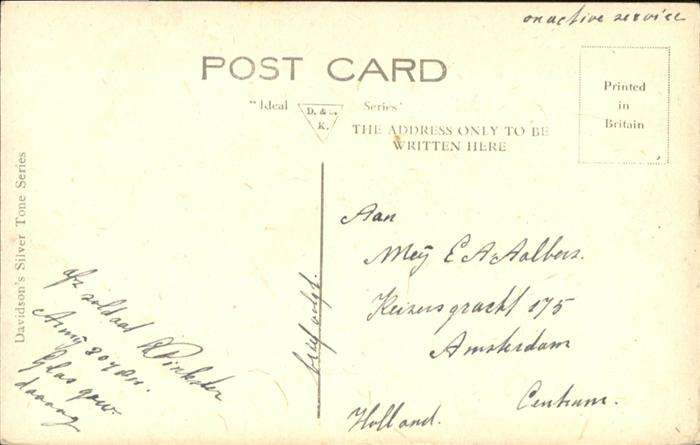 on active service
POST CARD
"Ideal D. & K. Series"
THE ADDRESS ONLY TO BE
WRITTEN HERE
Printed
in
Britain
Davidson's Silver Tone Series
Aan
Mej E A Aalbers.
Keizersgracht 175
Amsterdam
Centrum.
Holland.
brief volgt.
afz soldaat Pinkster
Army
Glasgow.